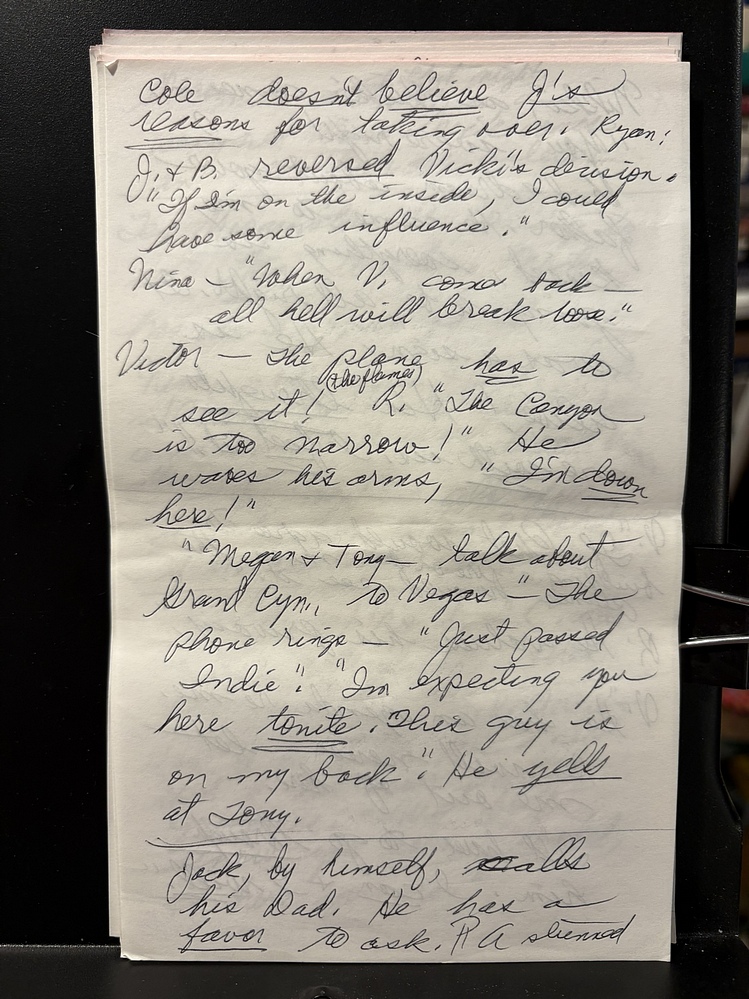 Cole doesn't believe J's
reasons for taking over. Ryan:
J. & B. reversed Vicki's decision.
"If I'm on the inside, I could
have some influence."
Nina — "When V. comes back —
all hell will break loose."
Victor — The plane has to
(the flames)
see it! R. "The Canyon
is too narrow!" He
waves his arms, "I'm down
here!"
"Megan & Tony — talk about
Grand Cyn., to Vegas" — The
phone rings — "Just passed
Indie". "I'm expecting you
here tonite. This guy is
on my back". He yells
at Tony.
Jack, by himself, calls
his Dad. He has a
favor to ask. A stunned